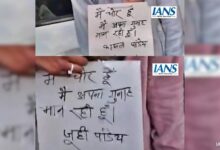 मैं चोर हूँ
मैं अपना गुनाह
मान रही हूँ।
काजल पांडेय
IANS
IANS
मैं चोर हूँ
मैं अपना गुनाह
मान रही हूँ।
जूही पांडेय